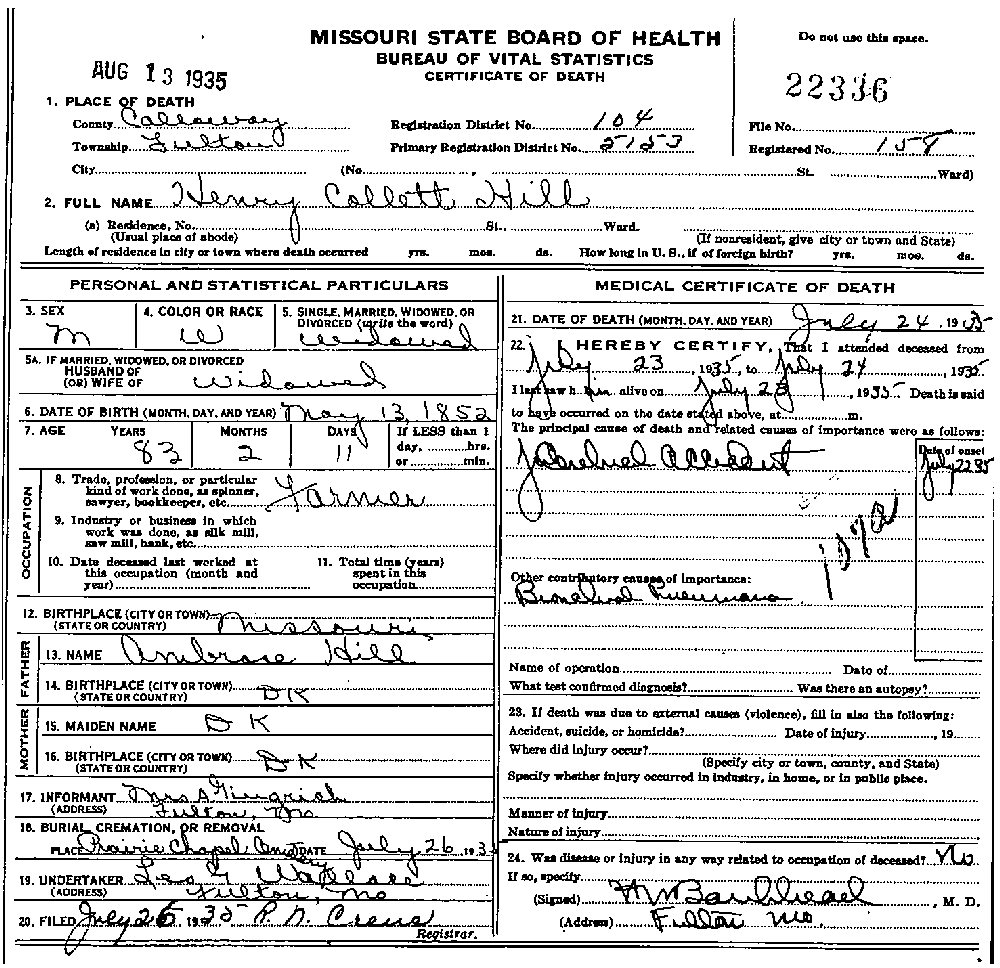 MISSOURI STATE BOARD OF HEALTH
BUREAU OF VITAL STATISTICS
CERTIFICATE OF DEATH
Do not use this space.
AUG 13 1935
22336
1. PLACE OF DEATH
County Callaway Registration District No. 104 File No.
Township Fulton Primary Registration District No. 5153 Registered No. 158
City (No. , St. Ward)
2. FULL NAME Henry Collett Hill
(a) Residence, No. St., Ward.
(Usual place of abode) (If nonresident, give city or town and State)
Length of residence in city or town where death occurred yrs. mos. ds. How long in U. S., if of foreign birth? yrs. mos. ds.
PERSONAL AND STATISTICAL PARTICULARS
3. SEX 4. COLOR OR RACE 5. SINGLE, MARRIED, WIDOWED, OR
DIVORCED (write the word)
M W Widowed
5A. IF MARRIED, WIDOWED, OR DIVORCED
HUSBAND OF
(OR) WIFE OF Widowed
6. DATE OF BIRTH (MONTH, DAY, AND YEAR) May 13 1852
7. AGE YEARS MONTHS DAYS If LESS than 1
day, hrs.
83 2 11 or min.
OCCUPATION
8. Trade, profession, or particular
kind of work done, as spinner,
sawyer, bookkeeper, etc. Farmer
9. Industry or business in which
work was done, as silk mill,
saw mill, bank, etc.
10. Date deceased last worked at
this occupation (month and
year)
11. Total time (years)
spent in this
occupation
12. BIRTHPLACE (CITY OR TOWN)
(STATE OR COUNTRY) Missouri
FATHER
13. NAME Ambrose Hill
14. BIRTHPLACE (CITY OR TOWN)
(STATE OR COUNTRY) DK
MOTHER
15. MAIDEN NAME DK
16. BIRTHPLACE (CITY OR TOWN)
(STATE OR COUNTRY) DK
17. INFORMANT Mrs Gingrich
(ADDRESS) Fulton, Mo
18. BURIAL, CREMATION, OR REMOVAL
PLACE Prairie Chapel DATE July 26, 193
19. UNDERTAKER Wallace
(ADDRESS) Fulton, Mo
20. FILED July 26 1935 R. N. Crews
Registrar.
MEDICAL CERTIFICATE OF DEATH
21. DATE OF DEATH (MONTH, DAY, AND YEAR) July 24, 1935
22. I HEREBY CERTIFY, That I attended deceased from
July 23, 1935, to July 24, 1935
I last saw h im alive on July 23, 1935 Death is said
to have occurred on the date stated above, at m.
The principal cause of death and related causes of importance were as follows:
Date of onset
Accident July 22 35
107a
Other contributory causes of importance:
Bronchial Pneumonia
Name of operation Date of
What test confirmed diagnosis? Was there an autopsy?
23. If death was due to external causes (violence), fill in also the following:
Accident, suicide, or homicide? Date of injury , 19
Where did injury occur?
(Specify city or town, county, and State)
Specify whether injury occurred in industry, in home, or in public place.
Manner of injury
Nature of injury
24. Was disease or injury in any way related to occupation of deceased? No
If so, specify
(Signed) , M. D.
(Address) Fulton Mo.